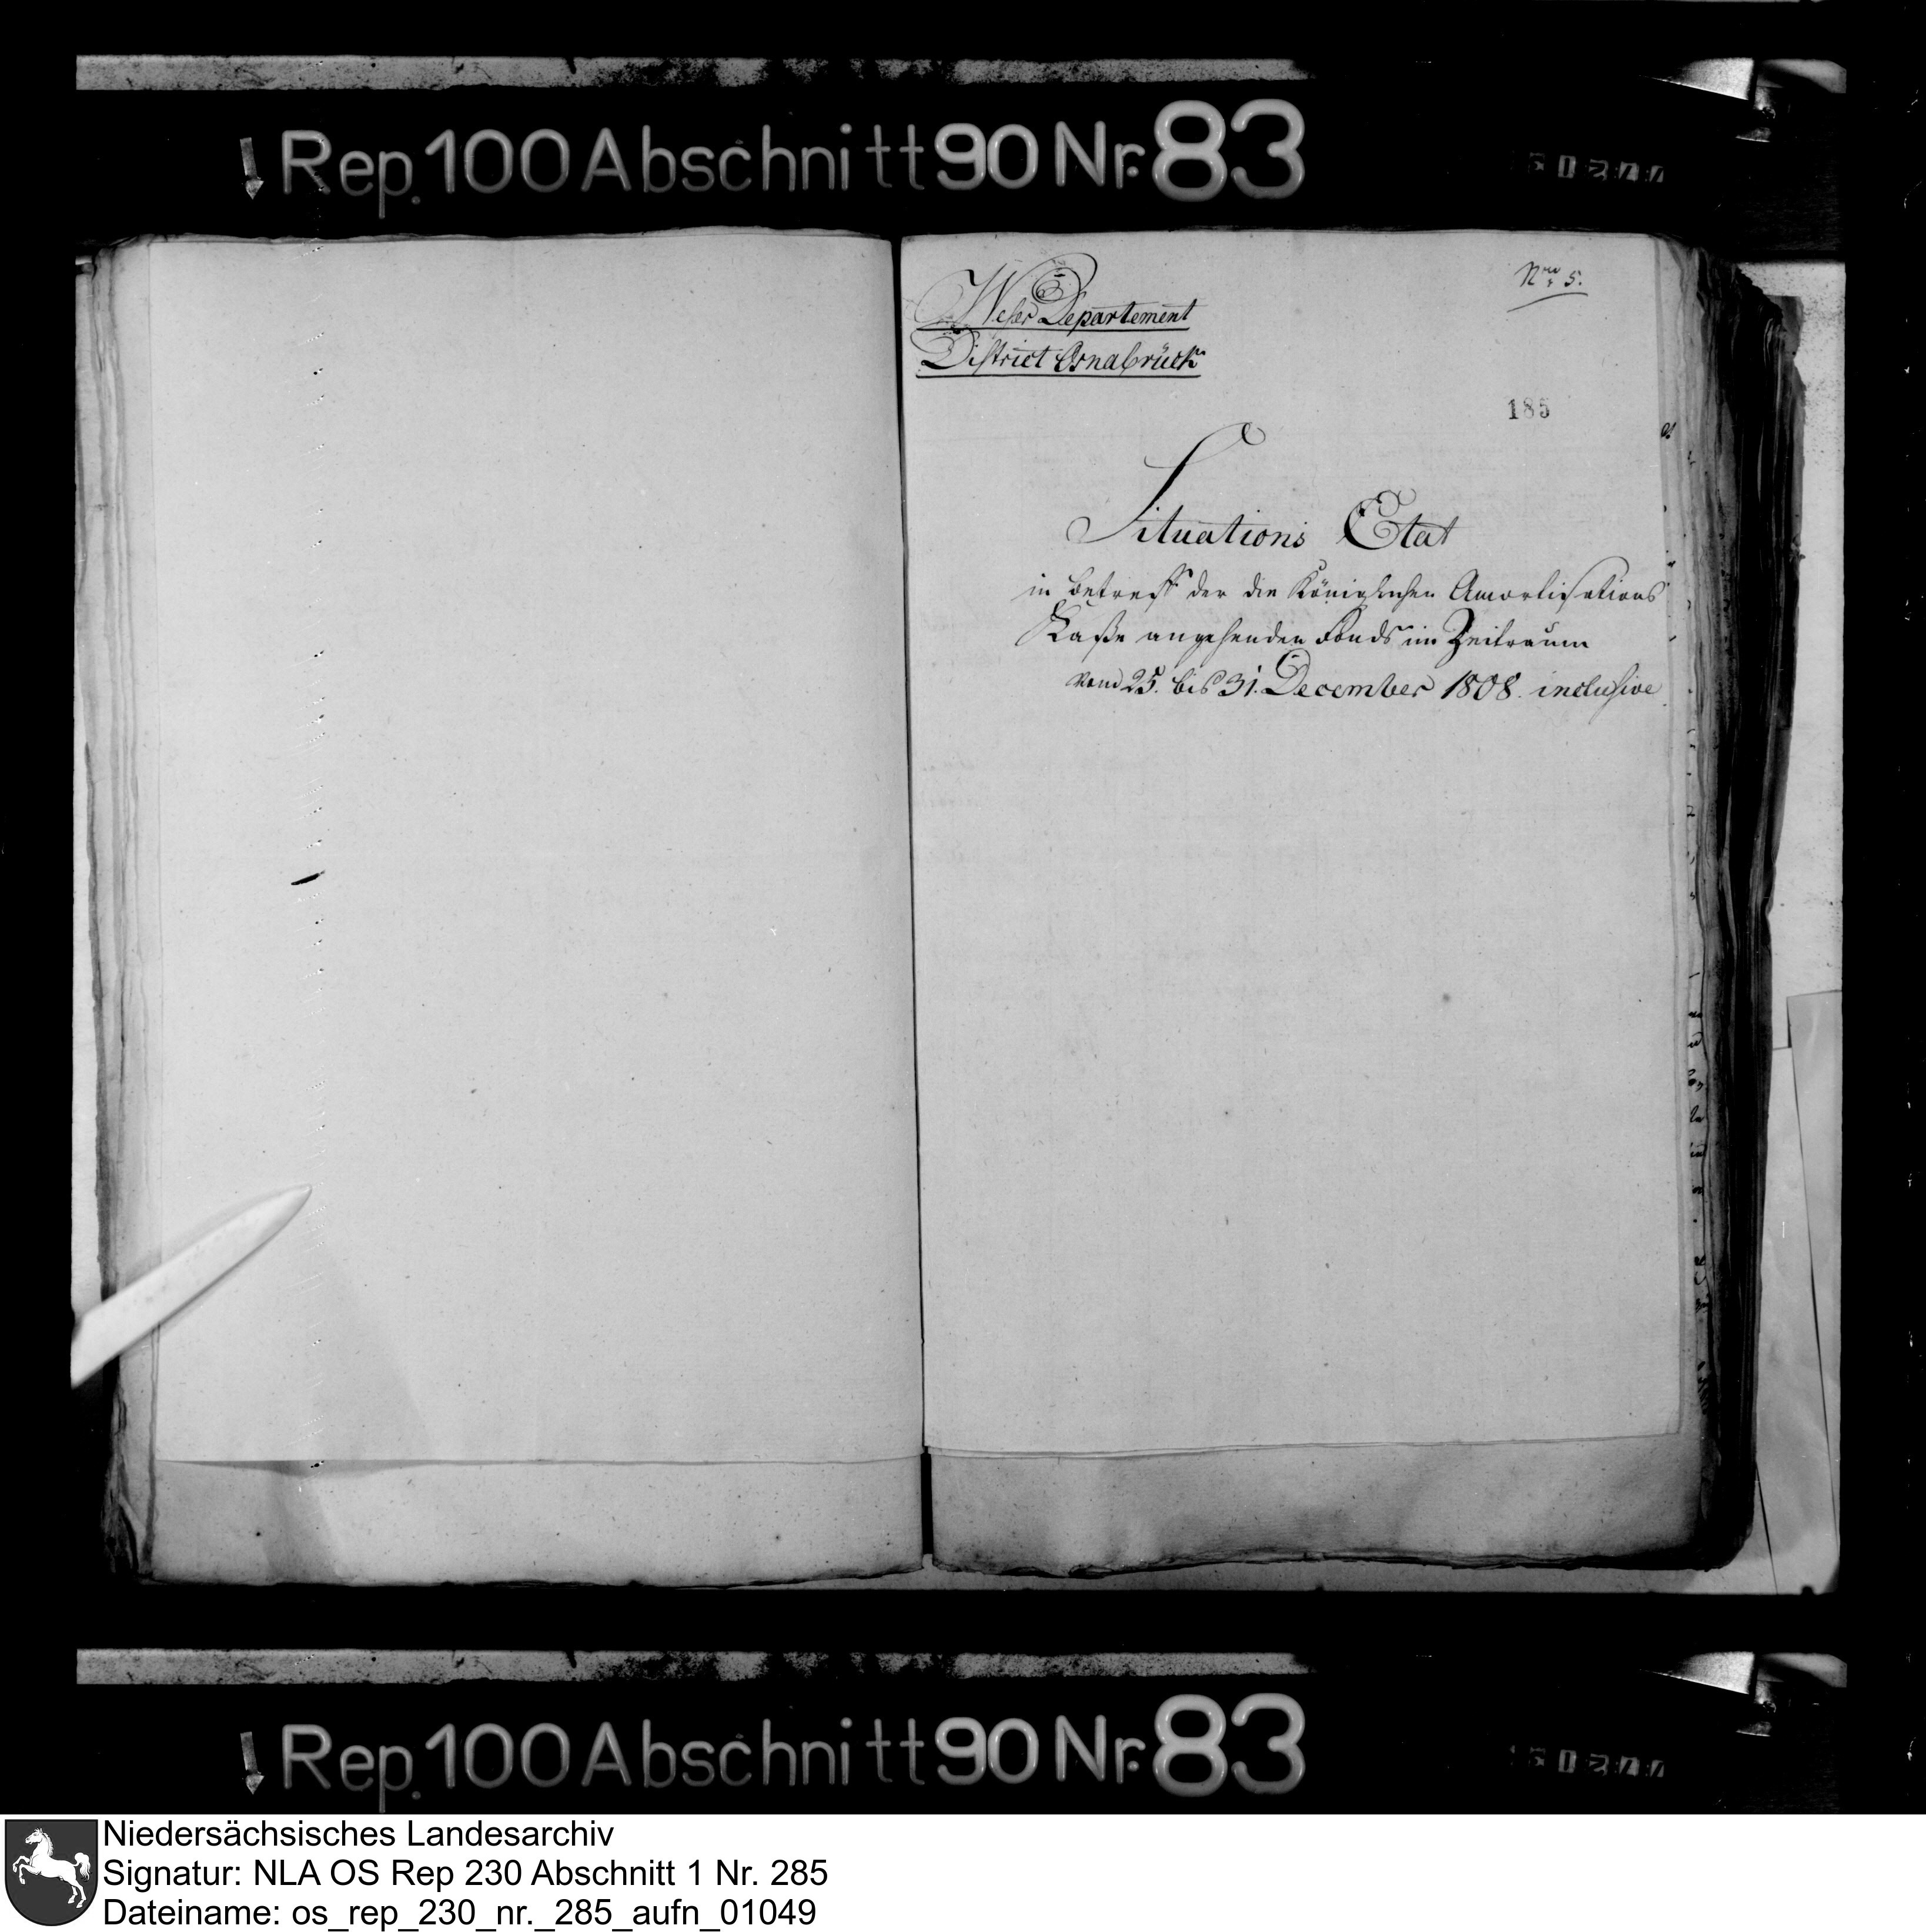 Rep. 100 Abschnitt 90 Nr. 83
Weser Departement
District Osnabrück
Nro 5.
185
Situations Etat
in betreff der die Königlichen Amortisations
Kaße angehenden Fonds im Zeitraum
vom 25. bis 31. December 1808. inclusive
Rep. 100 Abschnitt 90 Nr. 83
Niedersächsisches Landesarchiv
Signatur: NLA OS Rep 230 Abschnitt 1 Nr. 285
Dateiname: os_rep_230_nr._285_aufn_01049